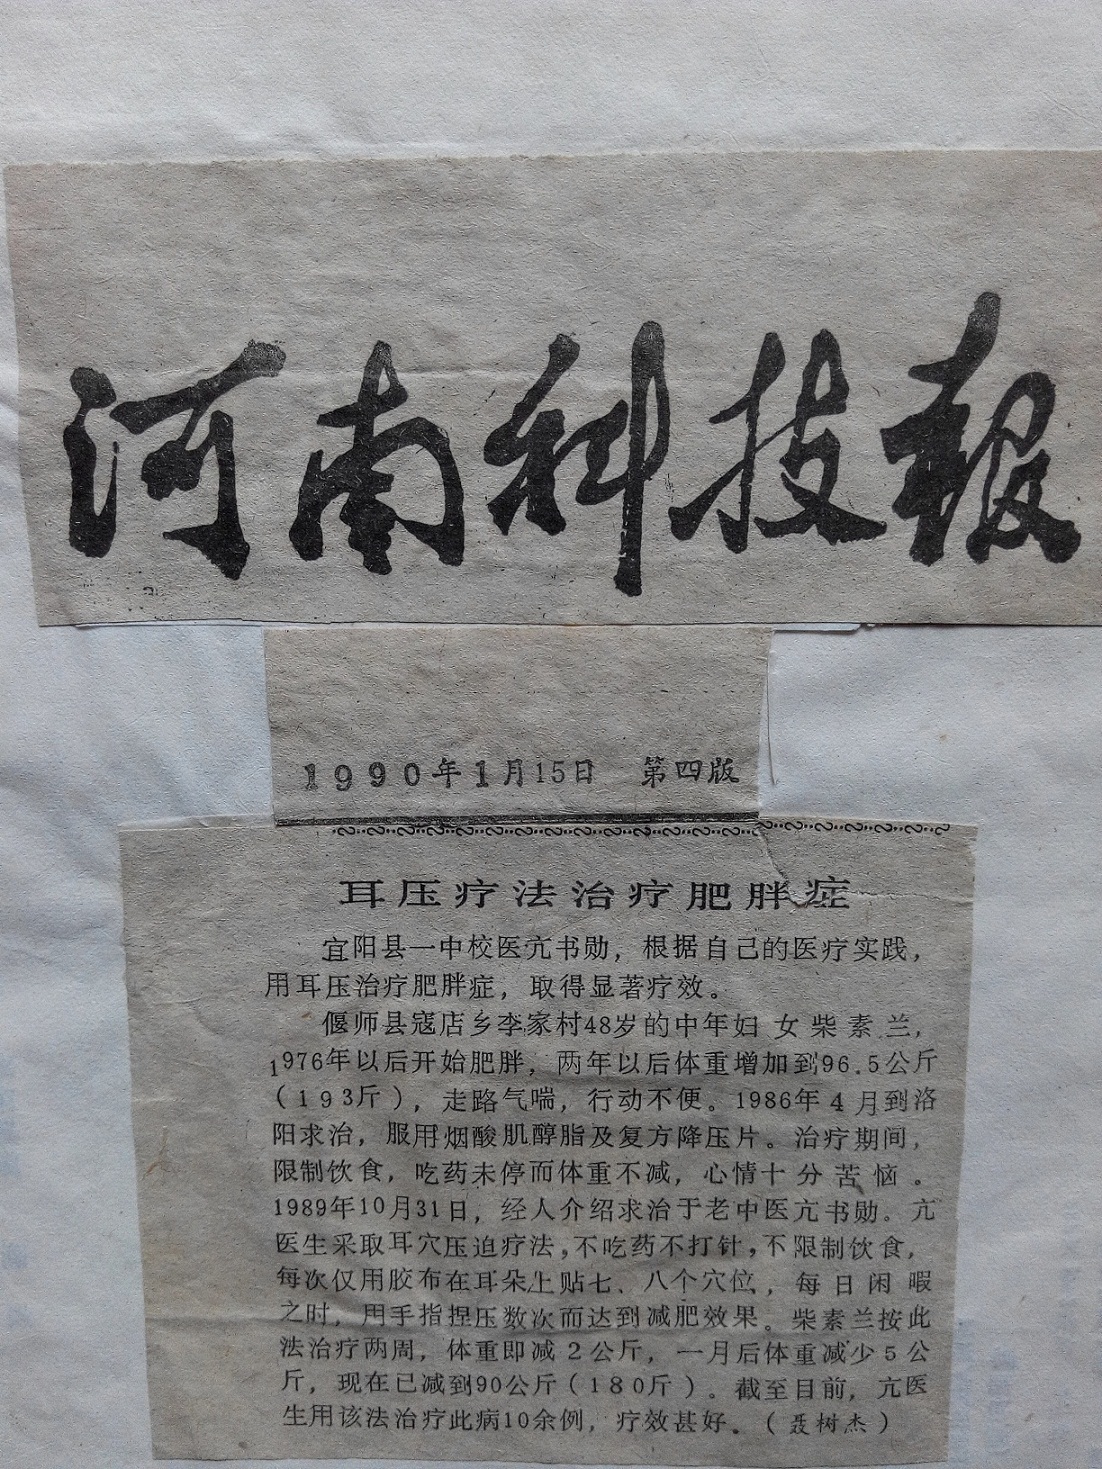 河南科技報
1990年1月15日 第四版
耳压疗法治疗肥胖症
宜阳县一中校医亢书勋，根据自己的医疗实践，
用耳压治疗肥胖症，取得显著疗效。
偃师县寇店乡李家村48岁的中年妇女柴素兰，
1976年以后开始肥胖，两年以后体重增加到96.5公斤
（193斤），走路气喘，行动不便。1986年4月到洛
阳求治，服用烟酸肌醇脂及复方降压片。治疗期间，
限制饮食，吃药未停而体重不减，心情十分苦恼。
1989年10月31日，经人介绍求治于老中医亢书勋。亢
医生采取耳穴压迫疗法，不吃药不打针，不限制饮食，
每次仅用胶布在耳朵上贴七、八个穴位，每日闲暇
之时，用手指捏压数次而达到减肥效果。柴素兰按此
法治疗两周，体重即减2公斤，一月后体重减少5公
斤，现在已减到90公斤（180斤）。截至目前，亢医
生用该法治疗此病10余例，疗效甚好。（聂树杰）